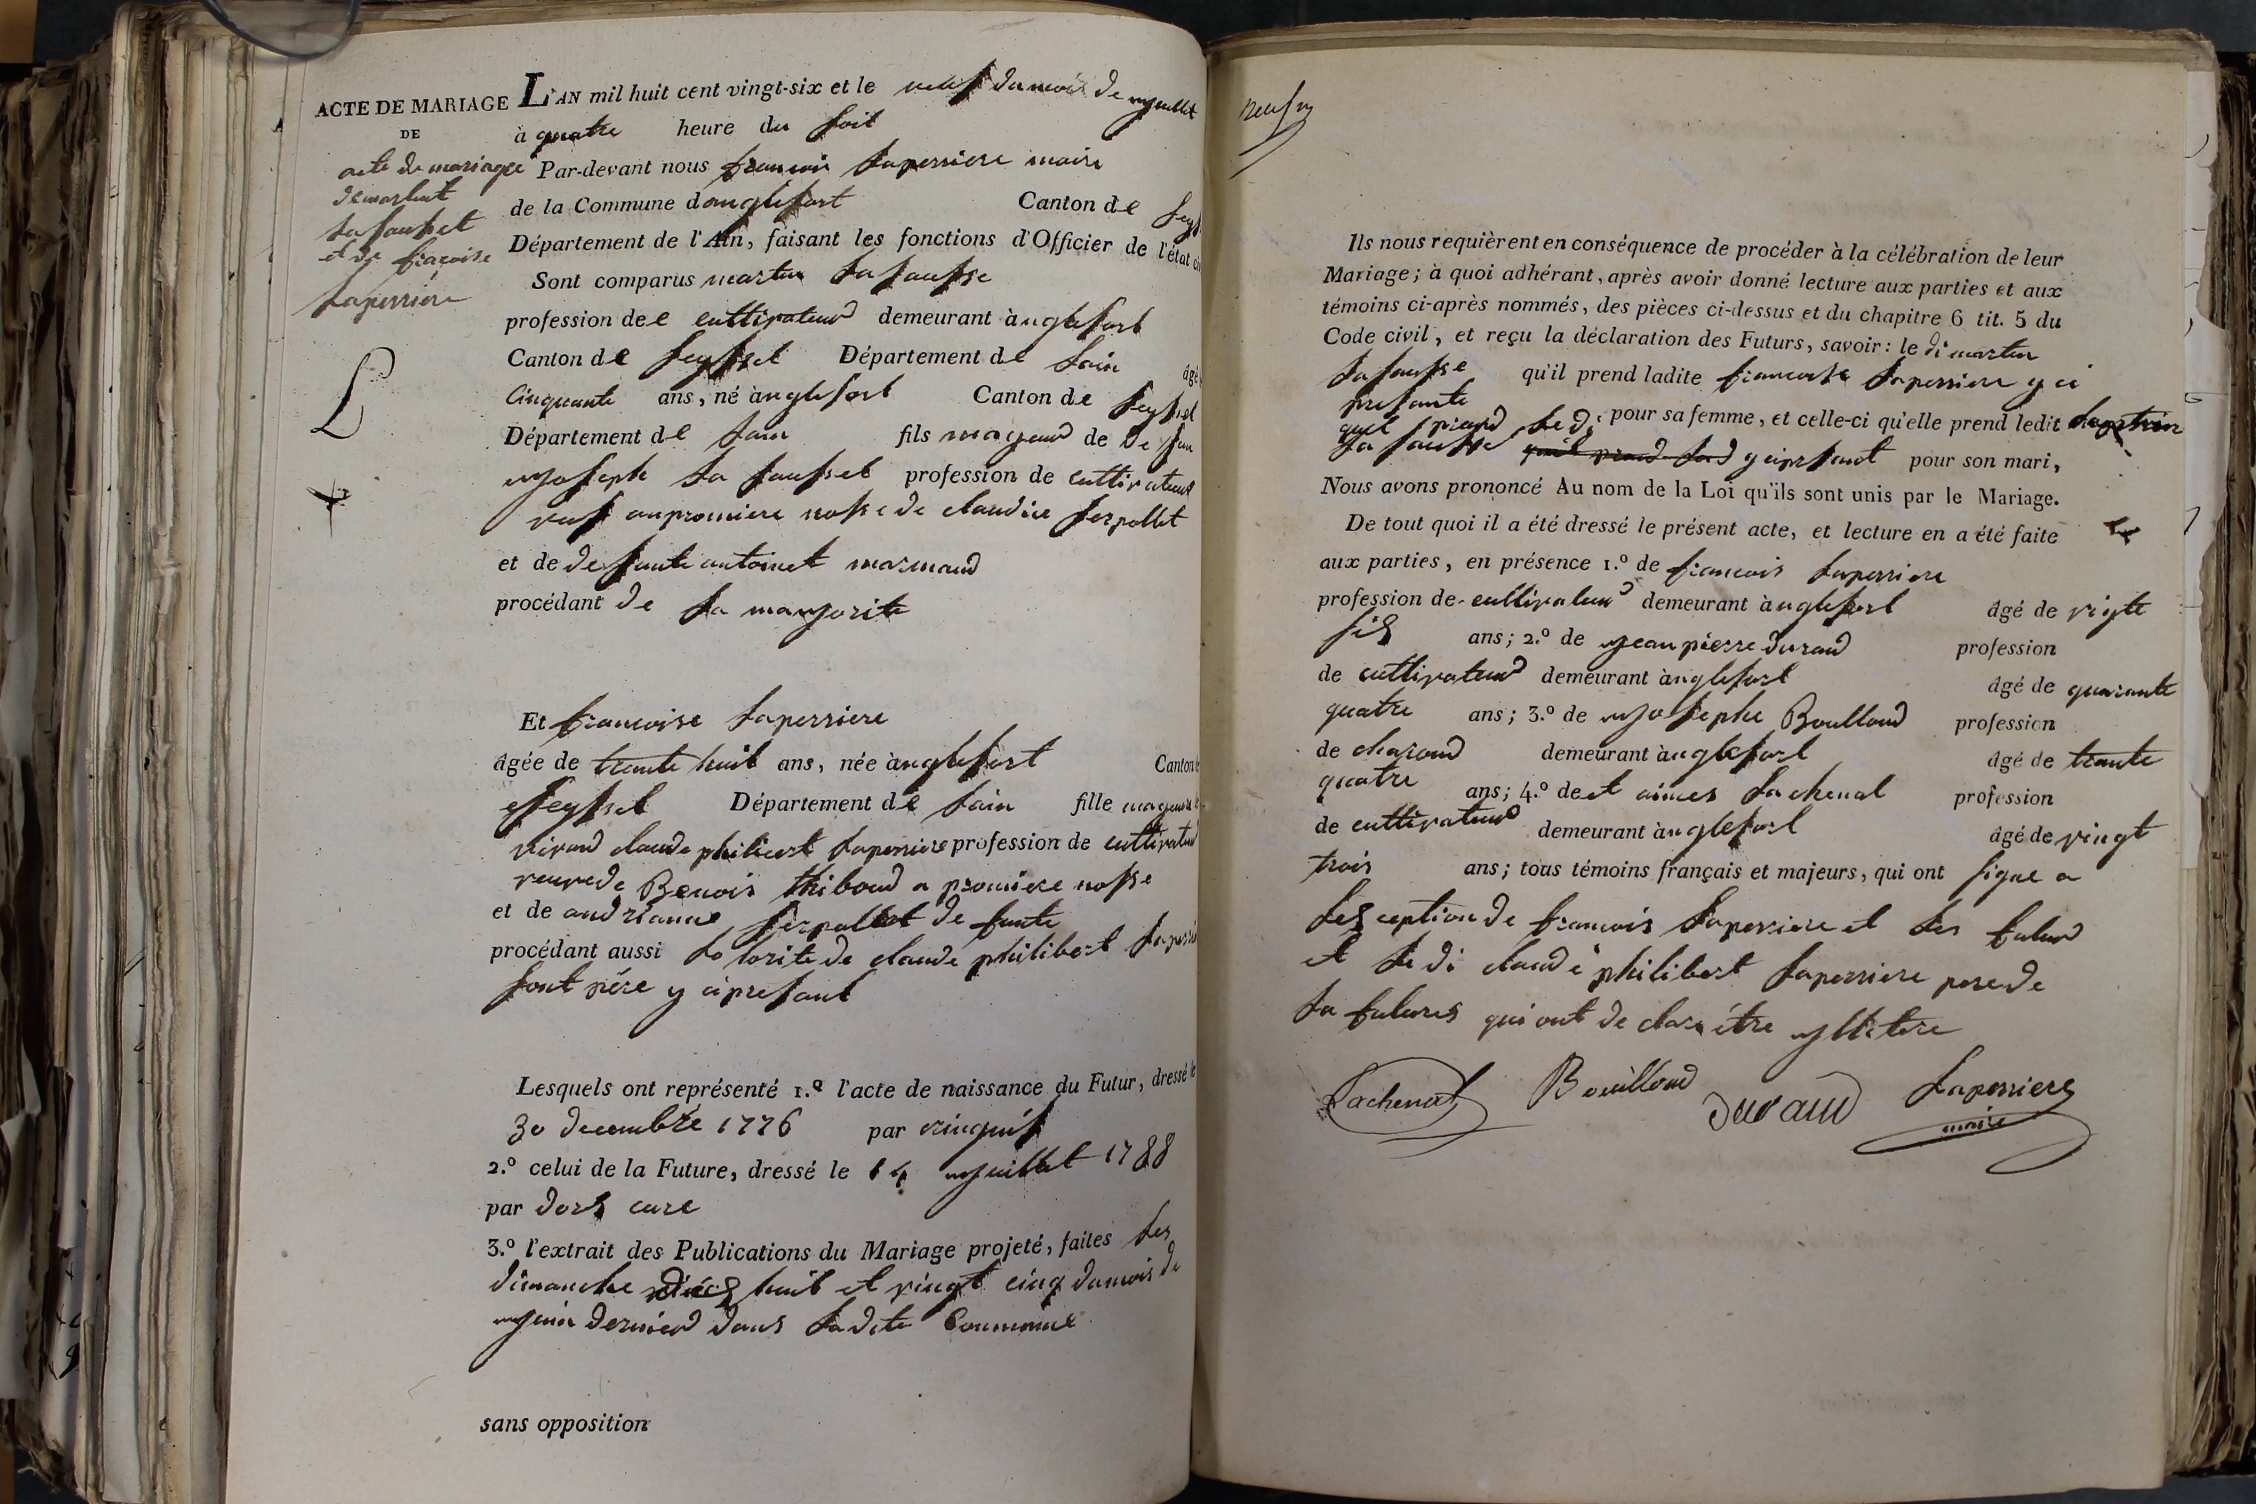 ACTE DE MARIAGE
DE
acte de mariage
de martint
La fausset
et de francoise
Laperriere
L
L'AN mil huit cent vingt-six et le neuf du mois de njuillet
à quatre heure du soit
Par-devant nous francois Laperriere maire
de la Commune d'anglefort Canton de seys
Département de l'Ain, faisant les fonctions d'Officier de l'état ci
Sont comparus martin La fausse
profession de cultivateur demeurant à nglefort
Canton de seyssel Département de Lain âgé
Cinquante ans, né à nglefort Canton de seyssel
Département de Lain fils majeur de de fun
njoseph La fausset profession de cultivateur
veuf an promiere nosse de claudine serpollet
et de defunte antoinet marmand
procédant de sa majorite
Et francoise Laperriere
âgée de trante huit ans, née à nglefort Canton
seyssel Département de Lain fille majeure
vivand claude philibert Laperriere profession de cultivateur
veuve de Benois thiboud a promiere nosse
et de andrianne serpollet de funte
procédant aussi Lo torite de claude philibert Laperri
sont père y ci presant
Lesquels ont représenté 1.º l'acte de naissance du Futur, dressé le
30 decembre 1776 par
2.º celui de la Future, dressé le 14 njuillet 1788
par cure
3.º l'extrait des Publications du Mariage projeté, faites Les
dimanche diez huit et vingt cinq du mois de
njuin dernierd dans Ladite Commune
sans opposition
neuf
Ils nous requièrent en conséquence de procéder à la célébration de leur
Mariage; à quoi adhérant, après avoir donné lecture aux parties et aux
témoins ci-après nommés, des pièces ci-dessus et du chapitre 6 tit. 5 du
Code civil, et reçu la déclaration des Futurs, savoir: le di martin
La fausse qu'il prend ladite francoise Laperriere y ci
presante pour sa femme, et celle-ci qu'elle prend ledit
quel prand Le di
La fausse y ci presant pour son mari,
Nous avons prononcé Au nom de la Loi qu'ils sont unis par le Mariage.
De tout quoi il a été dressé le présent acte, et lecture en a été faite
aux parties, en présence 1.º de francois Laperriere
profession de cultivateur demeurant à nglefort âgé de vigte
siz ans; 2.º de njean pierre durand profession
de cultivateur demeurant à nglefort âgé de quarante
quatre ans; 3.º de njosephe Boulloud profession
de charond demeurant à nglefort âgé de trante
quatre ans; 4.º de et aimes Lachenal profession
de cultivateur demeurant à nglefort âgé de vingt
trois ans; tous témoins français et majeurs, qui ont signe a
Lezception de francois Laperriere et Les futur
et Le di claude philibert Laperriere pere de
La futures qui ont de clare être ylletere
Lachenal Bouilloud Duraud Laperriere
maire